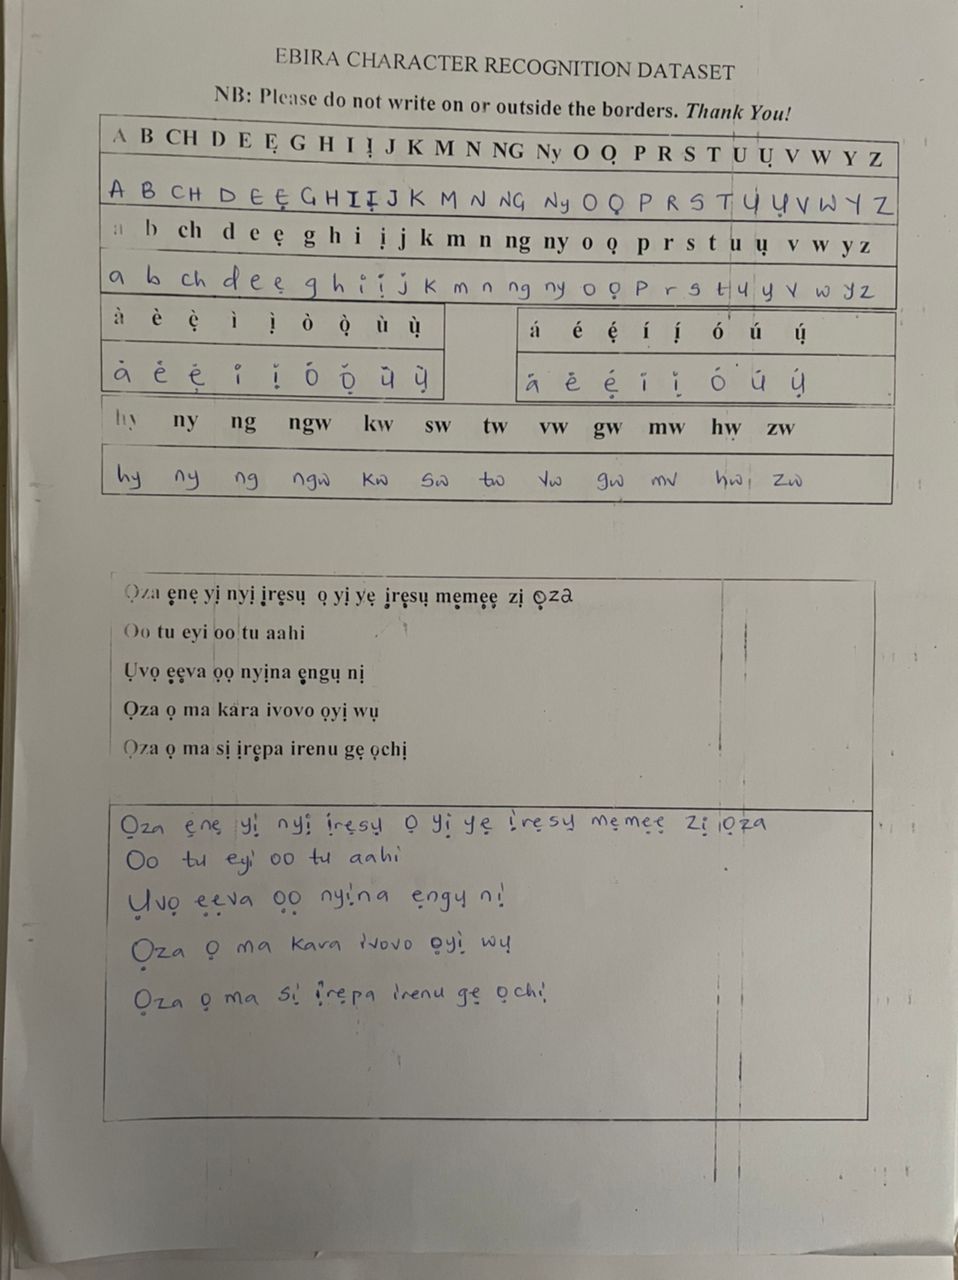 EBIRA CHARACTER RECOGNITION DATASET
NB: Please do not write on or outside the borders. Thank You!
A B CH D E Ẹ G H I Ị J K M N NG Ny O Ọ P R S T U Ụ V W Y Z
A B CH D E Ẹ G H I Ị J K M N NG Ny O Ọ P R S T U Ụ V W Y Z
a b ch d e ẹ g h i ị j k m n ng ny o ọ p r s t u ụ v w y z
a b ch d e ẹ g h i ị j k m n ng ny o ọ p r s t u ụ v w y z
à è ẹ̀ ì ị̀ ò ọ̀ ù ụ̀
à è ẹ̀ ì ị̀ ò ọ̀ ù ụ̀
á é ẹ́ í ị́ ó ú ụ́
á é ẹ́ í ị́ ó ú ụ́
hy ny ng ngw kw sw tw vw gw mw hw zw
hy ny ng ngw kw sw tw vw gw mv hw zw
Ọza ẹnẹ yị nyị ịrẹsụ ọ yị yẹ ịrẹsụ mẹmẹẹ zị ọza
Oo tu eyi oo tu aahi
Ụvọ ẹẹva ọọ nyịna ẹngụ nị
Ọza ọ ma kara ivovo ọyị wụ
Ọza ọ ma sị ịrẹpa irenu gẹ ọchị
Ọza ẹnẹ yị nyị ịrẹsụ ọ yị yẹ ịrẹsụ mẹmẹẹ zị ọza
Oo tu eyi oo tu aahi
Ụvọ ẹẹva ọọ nyịna ẹngụ nị
Ọza ọ ma kara ivovo ọyị wụ
Ọza ọ ma sị ịrẹpa irenu gẹ ọchị